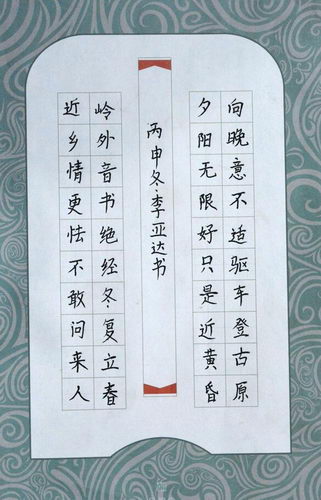 向晚意不适驱车登古原
夕阳无限好只是近黄昏
丙申冬李亚达书
岭外音书绝经冬复立春
近乡情更怯不敢问来人